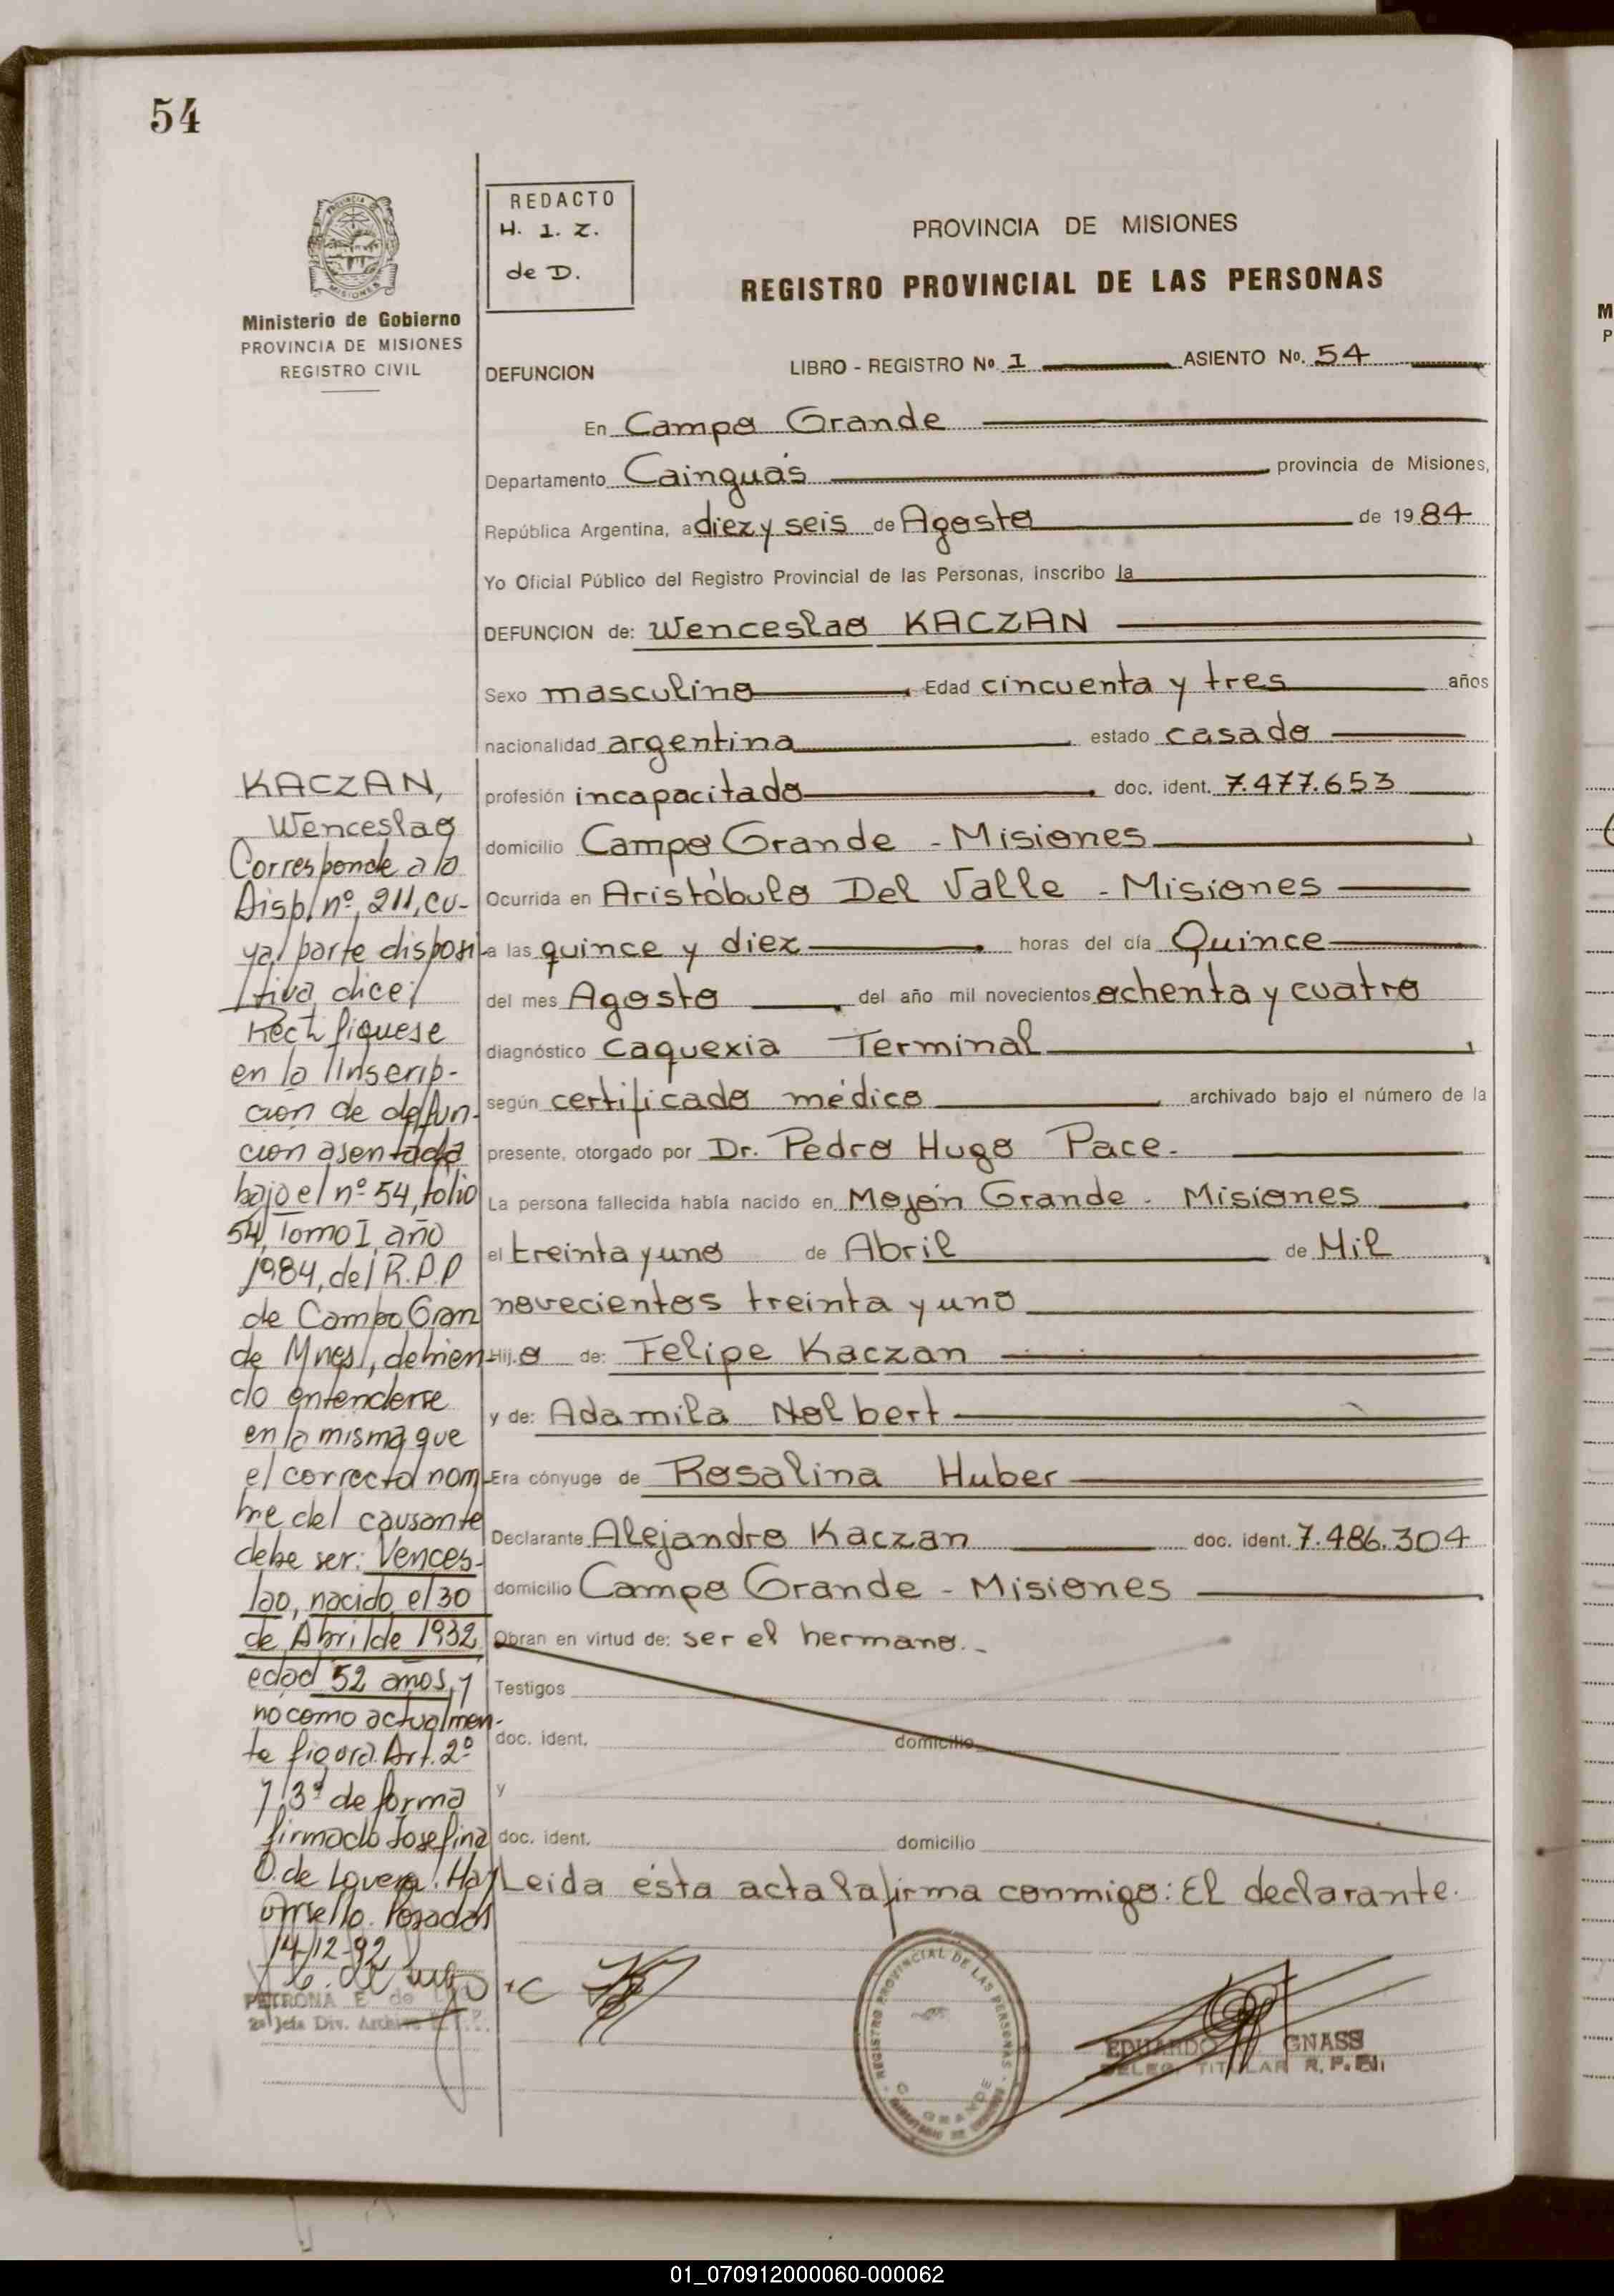 54
PROVINCIA DE MISIONES
Ministerio de Gobierno
PROVINCIA DE MISIONES
REGISTRO CIVIL
REDACTO
H. I. Z.
de D.
PROVINCIA DE MISIONES
REGISTRO PROVINCIAL DE LAS PERSONAS
DEFUNCION LIBRO - REGISTRO Nº 1 ASIENTO No. 54
En Campo Grande
Departamento Cainguás provincia de Misiones,
República Argentina, a diez y seis de Agosto de 1984
Yo Oficial Público del Registro Provincial de las Personas, inscribo la
DEFUNCION de: Wenceslao KACZAN
Sexo masculino Edad cincuenta y tres años
nacionalidad argentina estado casado
profesión incapacitado doc. ident. 7.477.653
domicilio Campo Grande - Misiones
Ocurrida en Aristóbulo Del Valle - Misiones
a las quince y diez horas del día Quince
del mes Agosto del año mil novecientos ochenta y cuatro
diagnóstico caquexia Terminal
según certificado médico archivado bajo el número de la
presente, otorgado por Dr. Pedro Hugo Pace.
La persona fallecida había nacido en Mojón Grande - Misiones
el treinta y uno de Abril de Mil
novecientos treinta y uno
Hijo de: Felipe Kaczan
y de: Adamila Nolbert
Era cónyuge de Rosalina Huber
Declarante Alejandro Kaczan doc. ident. 7.486.304
domicilio Campo Grande - Misiones
Obran en virtud de: ser el hermano.-
Testigos
doc. ident. domicilio
y
doc. ident. domicilio
Leida ésta acta la firma conmigo: El declarante.
KACZAN,
Wenceslao
Corresponde a la
Disp. nº 211, cu-
ya parte disposi
tiva dice:
Rectifiquese
en la Inscrip-
ción de defun-
ción asentada
bajo el nº 54, folio
54, Tomo I, año
1984, del R.P.P
de Campo Gran
de Mnes, debien
do entenderse
en la misma que
el correcto nom-
bre del causante
debe ser: Vences-
lao, nacido el 30
de Abril de 1932,
edad 52 años, y
no como actualmen-
te figura. Art. 2º
y 3º de forma
firmado Josefina
O. de Lovera. Hay
un sello. Posadas
14-12-92
PETRONA E de
2ª Jefa Div. Archivo R.P.P.
REGISTRO PROVINCIAL DE LAS PERSONAS
C. GRANDE
EDUARDO GNASS
DELEG. TITULAR R.P.P.
01_070912000060-000062